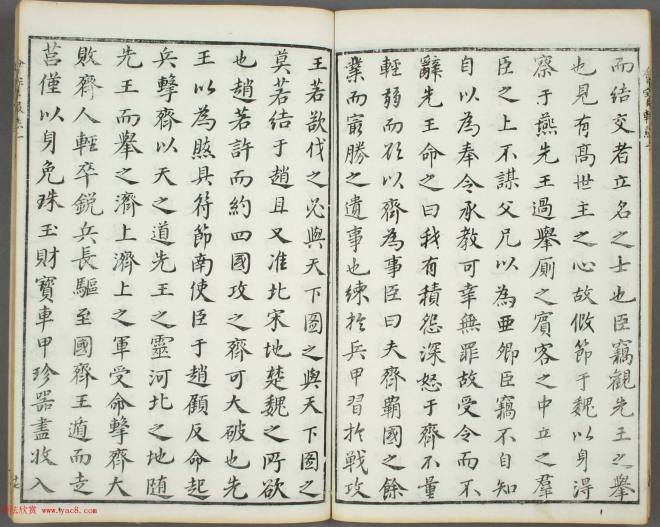 而結交者立名之士也臣竊觀先王之舉
也見有高世主之心故假節于魏以身得
察于燕先王過舉廁之賓客之中立之羣
臣之上不謀父兄以為亜卿臣竊不自知
自以為奉令承教可幸無罪故受令而不
辭先王命之曰我有積怨深怒于齊不量
輕弱而欲以齊為事臣曰夫齊覇國之餘
業而最勝之遺事也練扵兵甲習扵戰攻
王若欲伐之必與天下圖之與天下圖之
莫若結于趙且又淮北宋地楚魏之所欲
也趙若許而約四國攻之齊可大破也先
王以為然具符節南使臣于趙顧反命起
兵擊齊以天之道先王之靈河北之地随
先王而舉之濟上濟上之軍受命擊齊大
敗齊人輕卒鋭兵長驅至國齊王遁而走
莒僅以身免珠玉財寶車甲珍器盡收入
十七
书法欣赏 www.yac8.com